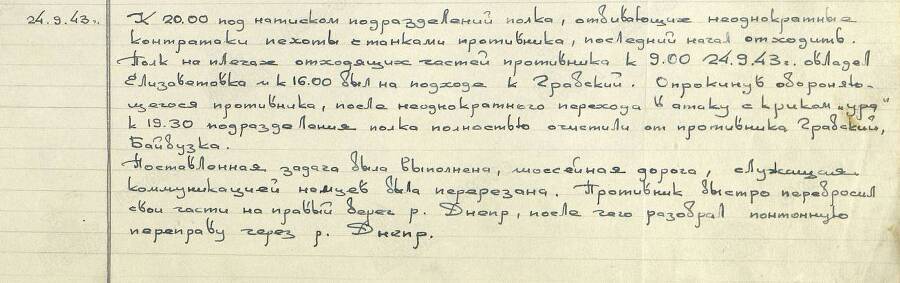 24.9.43г. К 20.00 под натиском подразделений полка, отбивающих неоднократные
контратаки пехоты с танками противника, последний начал отходить.
Полк на плечах отходящих частей противника к 9.00 24.9.43г. овладел
Елизаветовка и к 16.00 был на подходе к Градский. Опрокинув обороняю-
щегося противника, после неоднократного перехода в атаку с криком „ура"
к 19.30 подразделения полка полностью очистили от противника Градский,
Байбузка.
Поставленная задача была выполнена, шоссейная дорога, служащая
коммуникацией немцев была перерезана. Противник быстро перебросил
свои части на правый берег р. Днепр, после чего разобрал понтонную
переправу через р. Днепр.